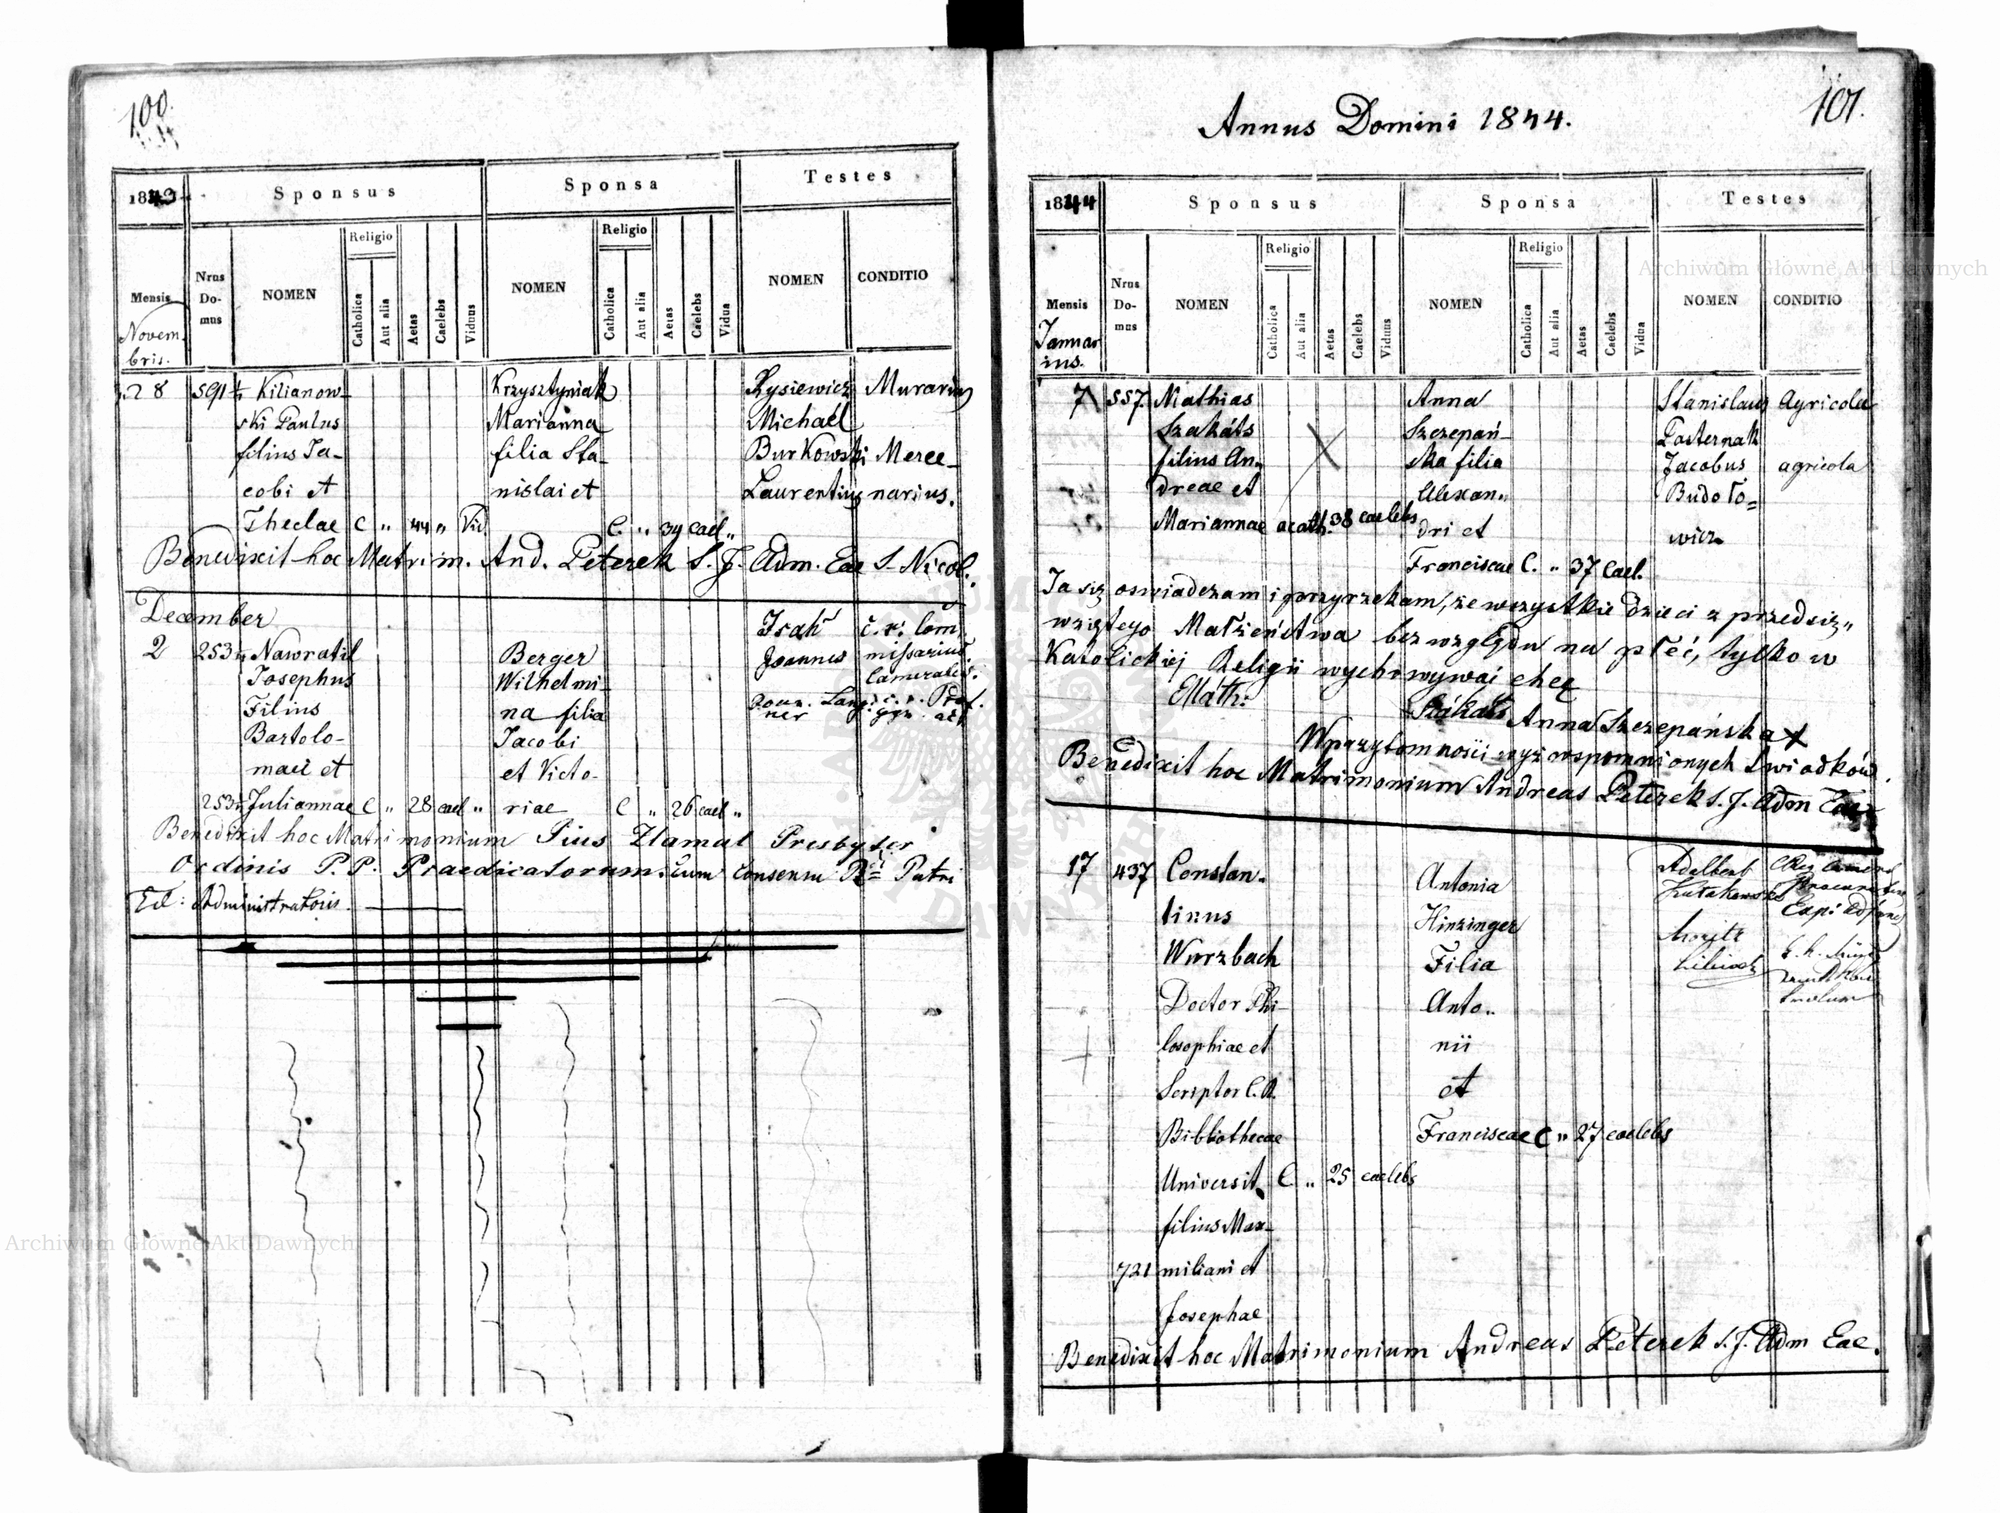 100.
1843
Sponsus
Sponsa
Testes
Mensis
Novem-
bris.
Nrus
Do-
mus
NOMEN
Religio
Catholica
Aut alia
Aetas
Caelebs
Viduus
NOMEN
Religio
Catholica
Aut alia
Aetas
Caelebs
Vidua
NOMEN
CONDITIO
28 Kilianow- Krzysztyniak Łysiewicz Murarius
ski Paulus Marianna Michael
filius Ja- filia Sta- Burkowski Merce-
cobi et nislai et Laurentius narius.
Theclae C " 44 " Vid. C. " 39 cael "
Benedixit hoc Matrim. And. Peterek S. J. Adm. Eae S. Nicol.
December
2 253 Nawratil Berger Joannes
Josephus Wilhelmi-
Filius na filia
Bartolo- Jacobi
maei et et Victo-
253 Juliannae C " 28 cael " riae C " 26 cael "
Benedixit hoc Matrimonium Pius Zlamal Presbyter
Ordinis P. P. Praedicatorum. cum consensu Patri
Administratoris.
101.
Annus Domini 1844.
1844
Sponsus
Sponsa
Testes
Mensis
Januar
ius.
Nrus
Do-
mus
NOMEN
Religio
Catholica
Aut alia
Aetas
Caelebs
Viduus
NOMEN
Religio
Catholica
Aut alia
Aetas
Caelebs
Vidua
NOMEN
CONDITIO
7 557. Mathias Anna Stanislaus Agricola
Szakáts Szczepań- Pasternak
filius An- ska filia Jacobus agricola
dreae et Alexan- Budoło=
Mariannae acath. 38 caelebs dri et wicz
Franciscae C. " 37 Cael.
Ja się oswiadczam i przyrzekam, że wszystkie dzieci z przedsię"
wziętego Małżeństwa bez względu na płeć, tylko w
Katolickiej Religii wychowywać chcę
Math: Szákáts Anna Szczepańska X
W przytomności wyż wspomnionych Swiadków.
Benedixit hoc Matrimonium Andreas Peterek S. J. Adm Eae
17 437 Constan- Antonia Adalbert
tinus Hinzinger Moritz
Wurzbach Filia
Doctor Phi Anto-
losophiae et nii
Scriptor C. R. et
Bibliothecae Franciscae C " 27 caelebs
Universit. C " 25 caelebs
filius Max-
721 miliani et
Josephae
Benedixit hoc Matrimonium Andreas Peterek S. J. Adm Eae.
Archiwum Główne Akt Dawnych
Archiwum Główne Akt Dawnych